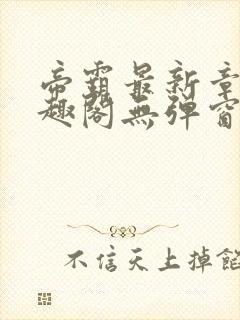 帝霸最新章
趣閣無彈窗
不信天上掉餡